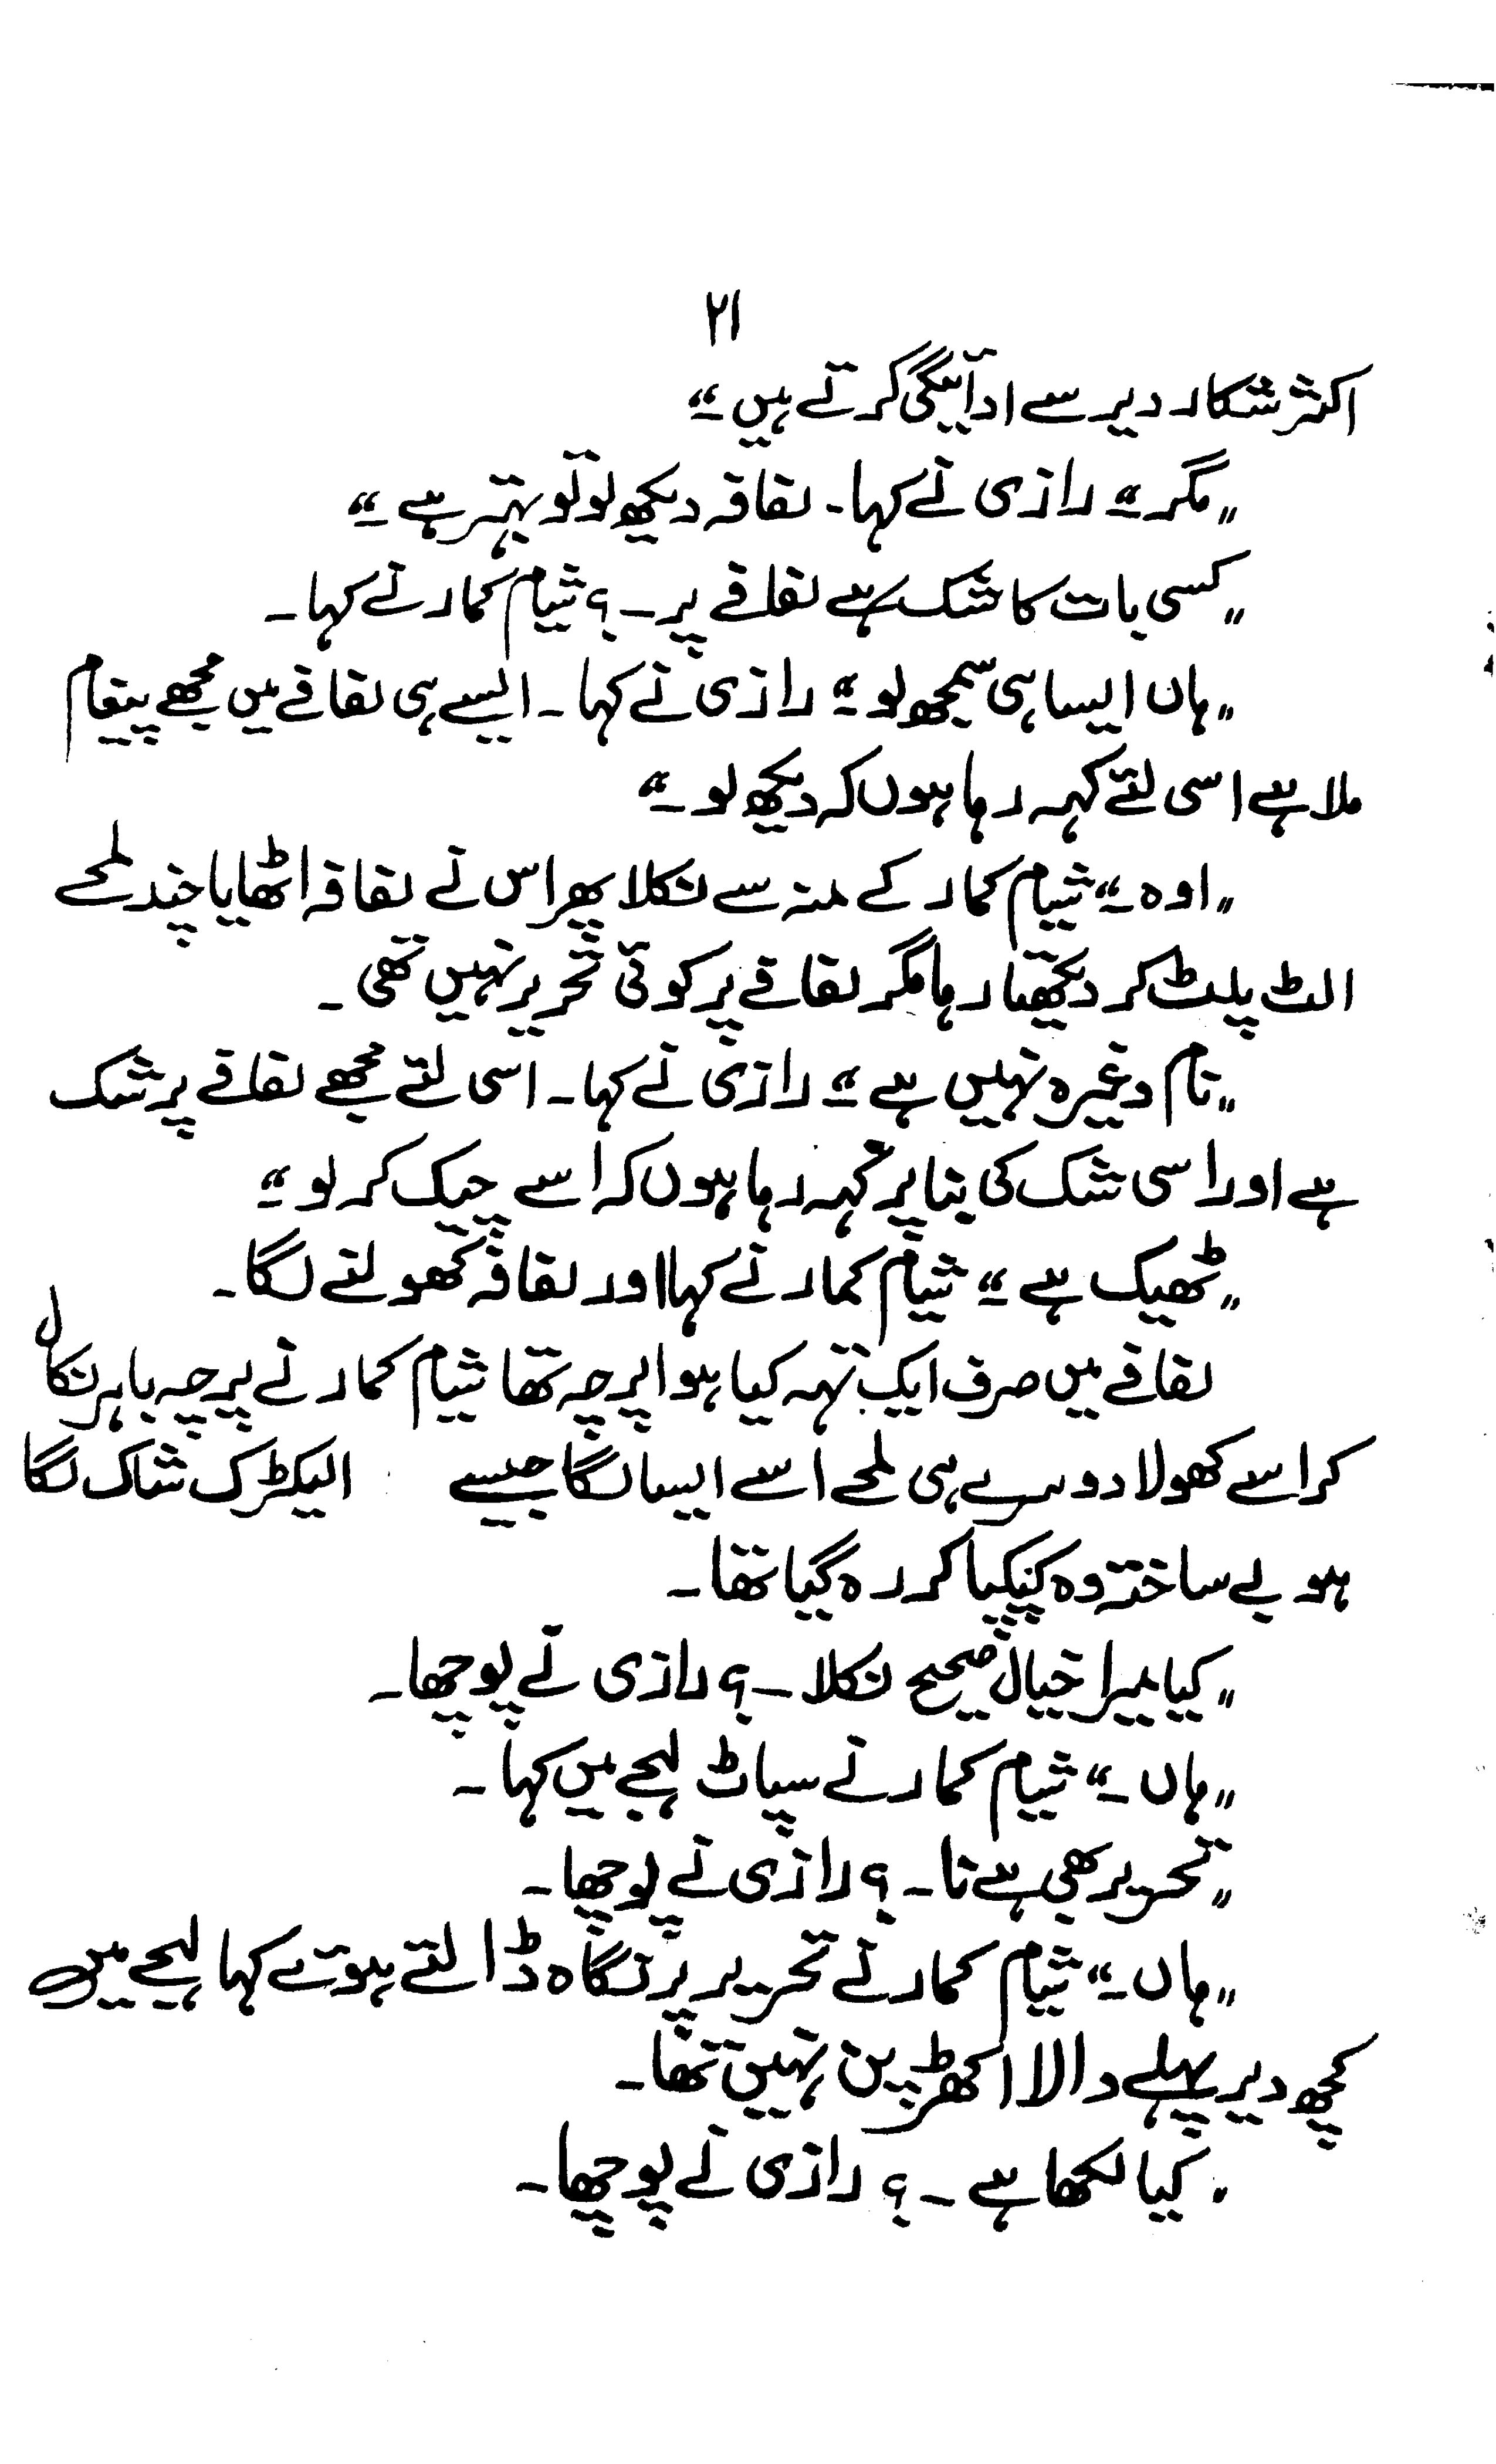 ۲۱
اکثر شکار دیر سے ادائیگی کرتے ہیں ۔"
"مگر ۔" رازی نے کہا ۔ لفافہ دیکھ لو تو بہتر ہے ۔"
"کسی بات کا شک ہے لفافے پر ۔ ؟ شیام کمار نے کہا ۔
"ہاں ایسا ہی سمجھ لو ۔" رازی نے کہا ۔ ایسے ہی لفافے میں مجھے پیغام
ملا ہے اسی لئے کہہ رہا ہوں کہ دیکھ لو ۔"
"اوہ ۔" شیام کمار کے منہ سے نکلا پھر اس نے لفافہ اٹھایا چند لمحے
الٹ پلٹ کر دیکھتا رہا مگر لفافے پر کوئی تحریر نہیں تھی ۔
"نام وغیرہ نہیں ہے ۔" رازی نے کہا ۔ اسی لئے مجھے لفافے پر شک
ہے اور اسی شک کی بنا پر کہہ رہا ہوں کہ اسے چیک کر لو ۔"
"ٹھیک ہے ۔" شیام کمار نے کہا اور لفافہ کھولنے لگا ۔
لفافے میں صرف ایک تہہ کیا ہوا پرچہ تھا شیام کمار نے پرچہ باہر نکال
کر اسے کھولا دوسرے ہی لمحے اسے ایسا لگا جیسے الیکٹرک شاک لگا
ہو بے ساختہ وہ کپکپا کر رہ گیا تھا ۔
"کیا میرا خیال صحیح نکلا ۔ ؟ رازی نے پوچھا ۔
"ہاں ۔" شیام کمار نے سپاٹ لہجے میں کہا ۔
"تحریر بھی ہے نا ۔ ؟ رازی نے پوچھا ۔
"ہاں ۔" شیام کمار نے تحریر پر نگاہ ڈالتے ہوئے کہا لہجے میں
کچھ دیر پہلے والا اکھڑ پن نہیں تھا ۔
"کیا لکھا ہے ۔ ؟ رازی نے پوچھا ۔